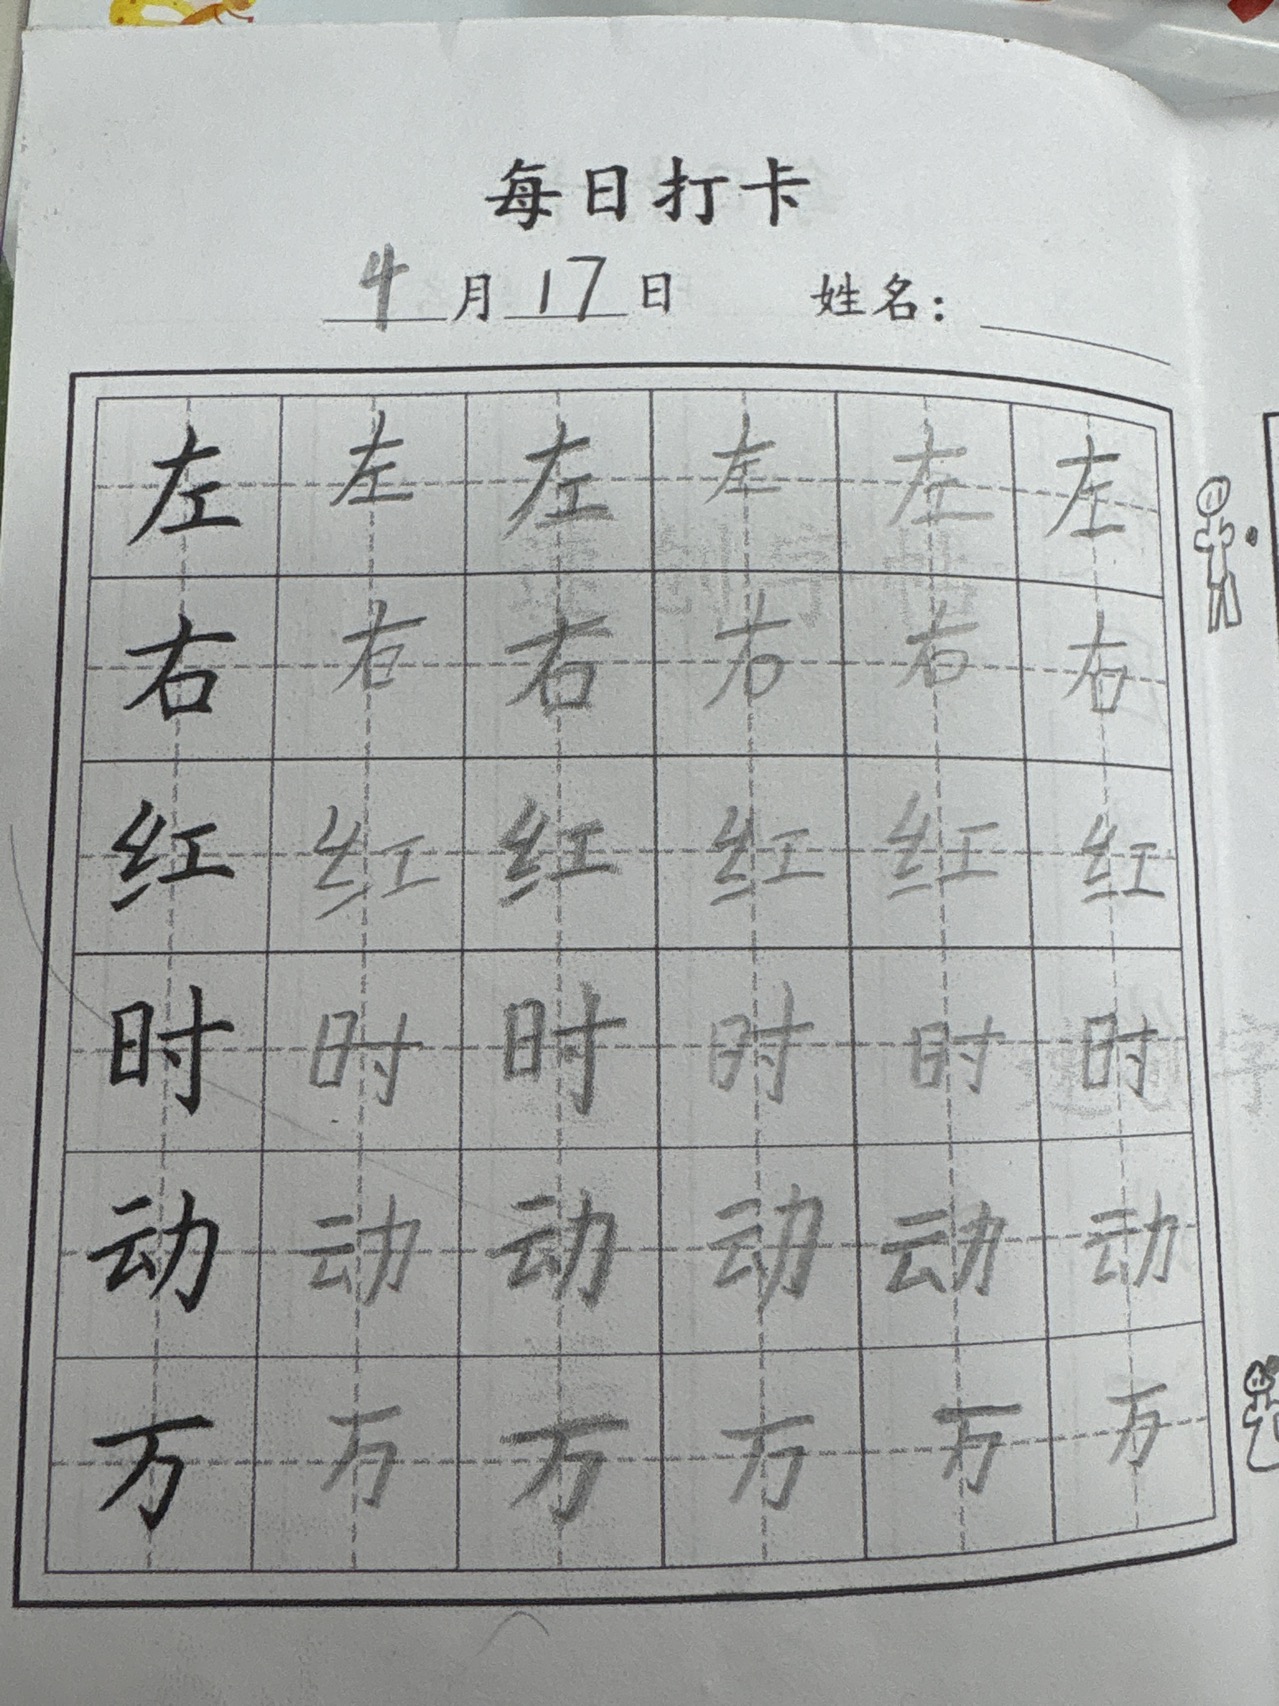 每日打卡
4月17日 姓名：
左左左左左左
右右右右右右
红红红红红红
时时时时时时
动动动动动动
万万万万万万